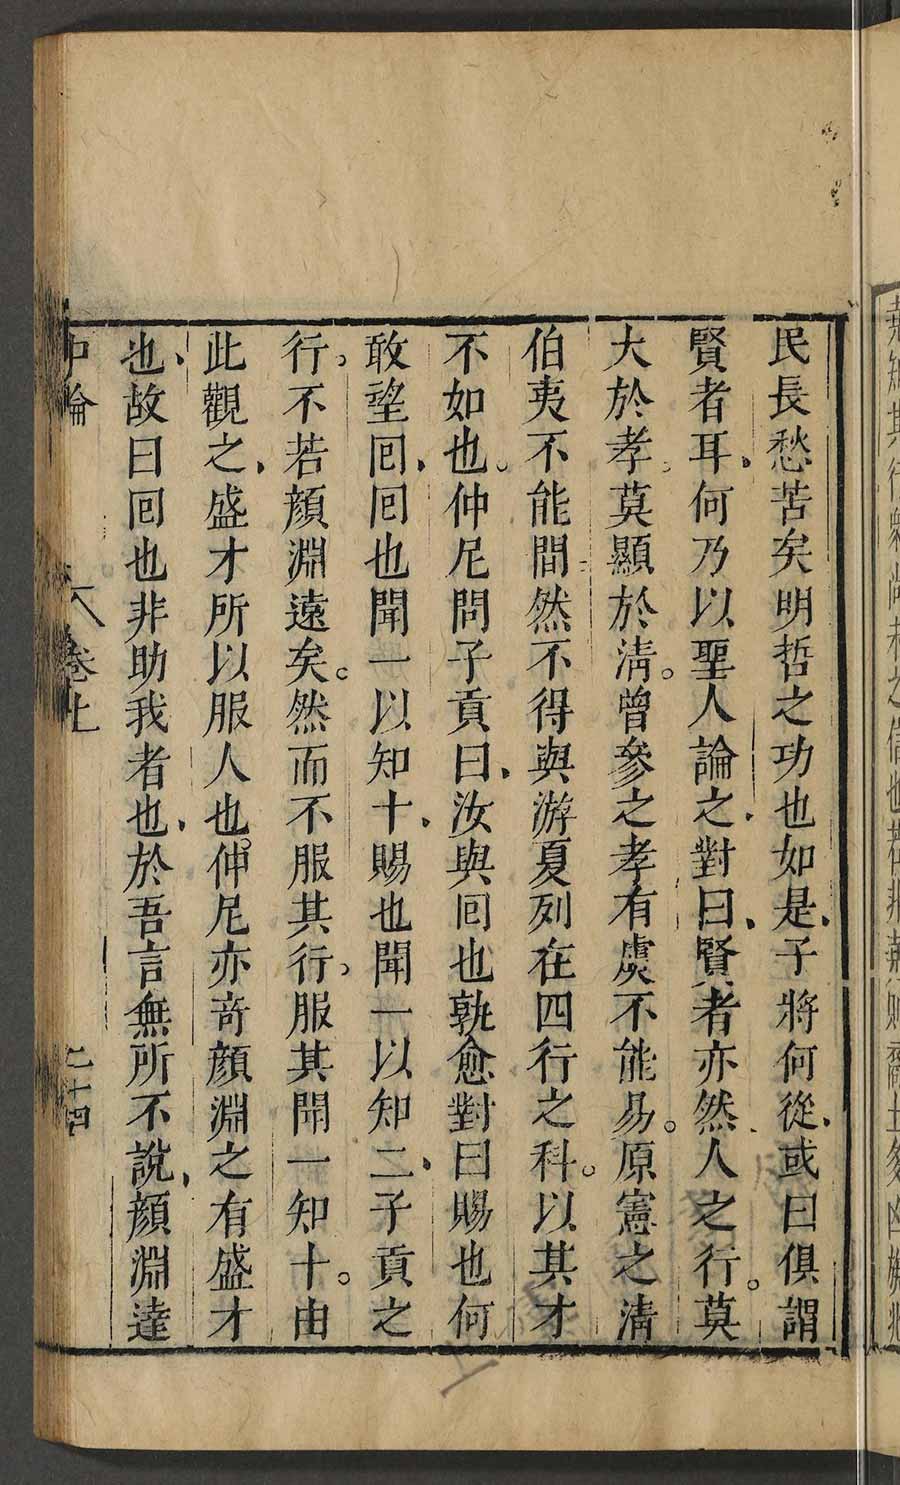 民長愁苦矣明哲之功也如是子將何從或曰俱謂
賢者耳何乃以聖人論之對曰賢者亦然人之行莫
大於孝莫顯於淸曾參之孝有虞不能易原憲之淸
伯夷不能間然不得與游夏列在四行之科以其才
不如也仲尼問子貢曰汝與回也孰愈對曰賜也何
敢望回回也聞一以知十賜也聞一以知二子貢之
行不若顔淵遠矣然而不服其行服其聞一知十由
此觀之盛才所以服人也仲尼亦竒顔淵之有盛才
也故曰回也非助我者也於吾言無所不說顔淵達
中論 卷上 二十四